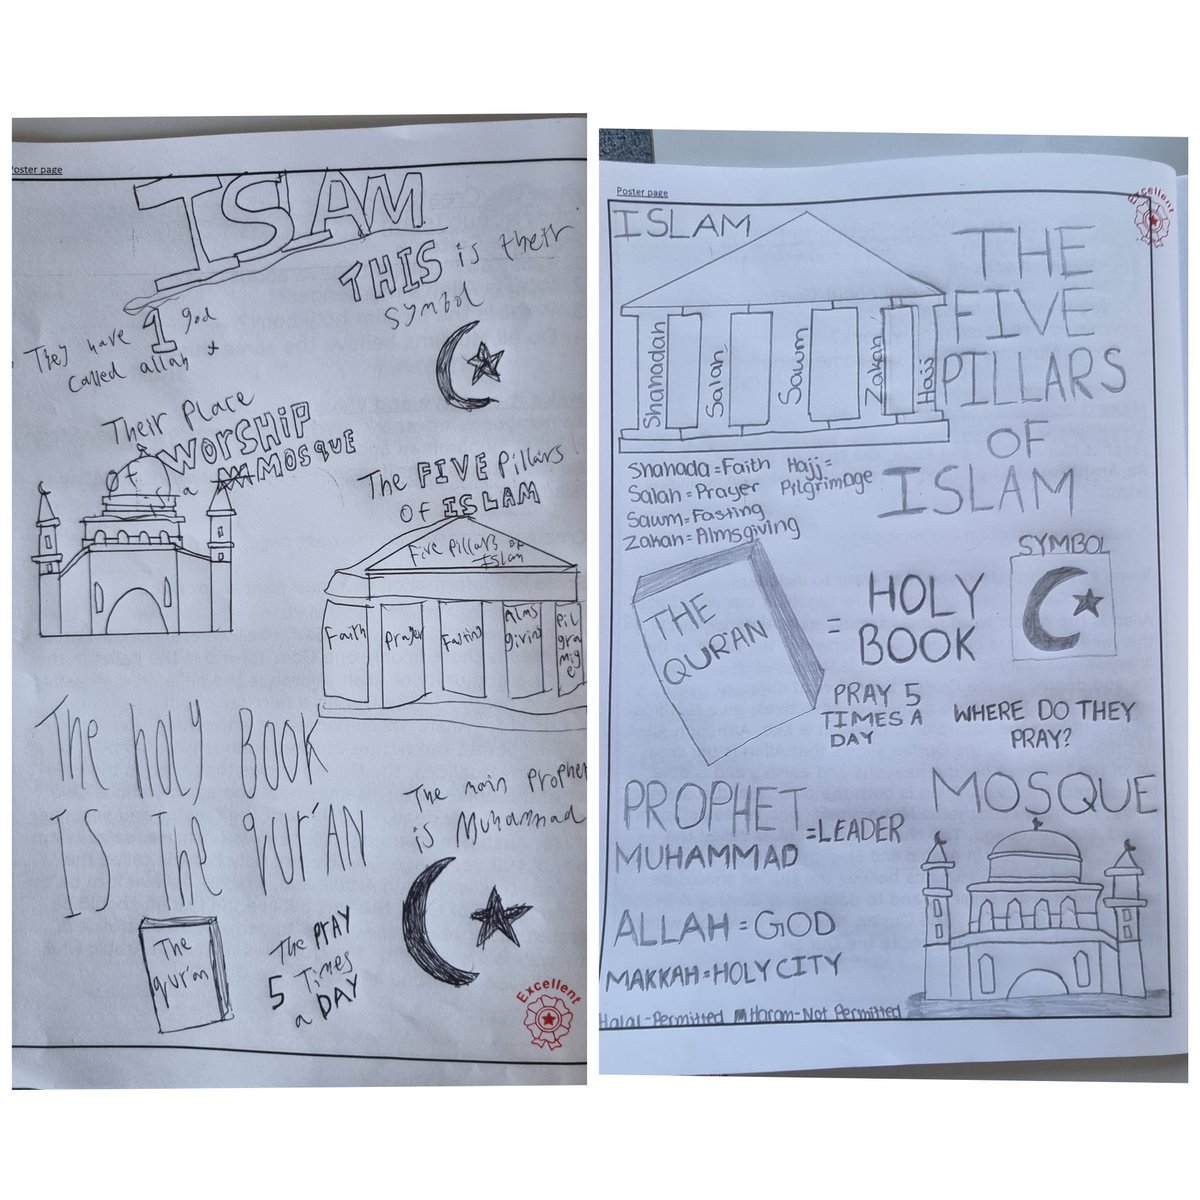 Poster page
ISLAM
THIS is their
symbol
They have 1 god
called allah
Their place
of WORSHIP
is a MOSQUE
The FIVE Pillars
OF ISLAM
Five Pillars of
Islam
Faith
Prayer
Fasting
Alms
giving
pil
gra
mig
e
The holy BOOK
IS The qur'AN
The main prophet
is Muhammad
The
qur'an
The PRAY
5 Times
a DAY
Excellent
Poster page
Excellent
ISLAM
THE
FIVE
PILLARS
OF
ISLAM
Shahadah
Salah
Sawm
Zakah
Hajj
Shahada=Faith Hajj=
Salah=Prayer Pilgrimage
Sawm=Fasting
Zakah=Almsgiving
THE
QUR'AN
= HOLY
BOOK
SYMBOL
PRAY 5
TIMES A
DAY
WHERE DO THEY
PRAY?
MOSQUE
PROPHET
MUHAMMAD
=LEADER
ALLAH=GOD
MAKKAH=HOLY CITY
Halal-Permitted Haram-Not Permitted